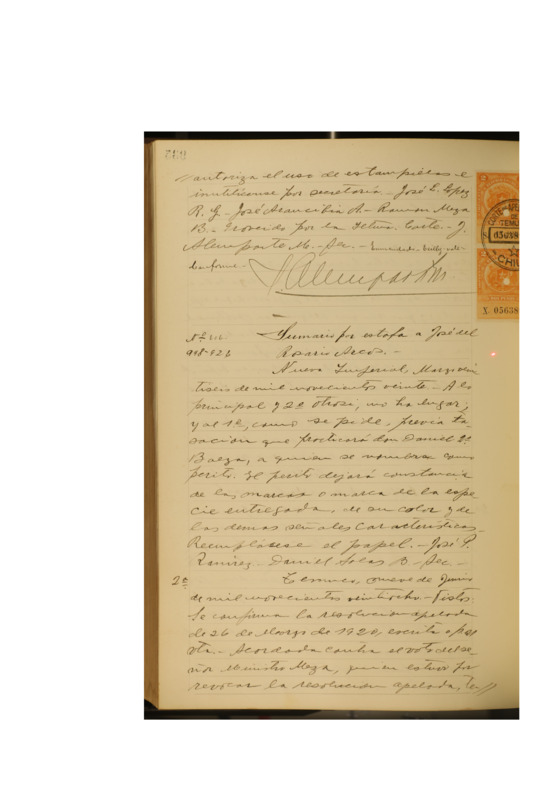 autoriza el uso de estampillas e
inutilícense por secretaría. - José E. López
R. G. - José Arancibia A. - Ramon Meza
B. - Proveido por la Iltma. Corte. - J.
Alemparte M. - Sec. -
Conforme. -
J. Alemparte M
TEMU
CHI
X. 05638
Sumario por estafa a José del
Rosario Arcos. -
Nueva Imperial, Marzo vein
tiseis de mil novecientos veinte. - A lo
principal y 2º otrosi, no ha lugar;
y al 1º, como se pide, previa ta-
sacion que practicará don Daniel 2º
Baeza, a quien se nombra como
perito. El perito dejará constancia
de las marcas o marca de la espe
cie entregada, de su color y de
las demas señales características. -
Reemplácese el papel. - José P.
Ramirez. - Daniel Solas B - Sec. -
2º Temuco, nueve de Junio
de mil novecientos veintiocho. - Vistos:
Se confirma la resolucion apelada
de 26 de Marzo de 1920, escrita a
vta. - Acordada contra el voto del se-
ñor Ministro Meza, quien estuvo por
revocar la resolucion apelada,